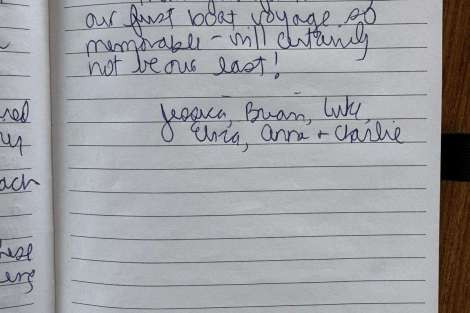 our first boat voyage so
memorable - will certainly
not be our last!
Jessica, Brian, Luke,
Elvia, Anna + Charlie
red
each